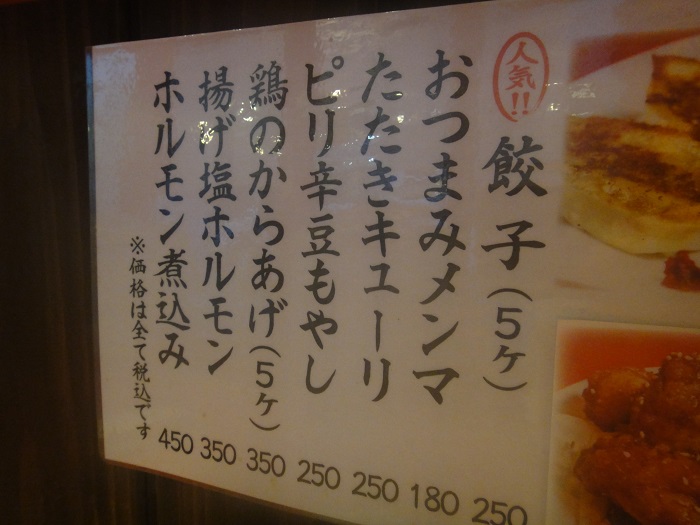 人気!!
餃子(5ケ) 250
おつまみメンマ 180
たたきキューリ 250
ピリ辛豆もやし 250
鶏のからあげ(5ケ) 350
揚げ塩ホルモン 350
ホルモン煮込み 450
※価格は全て税込です